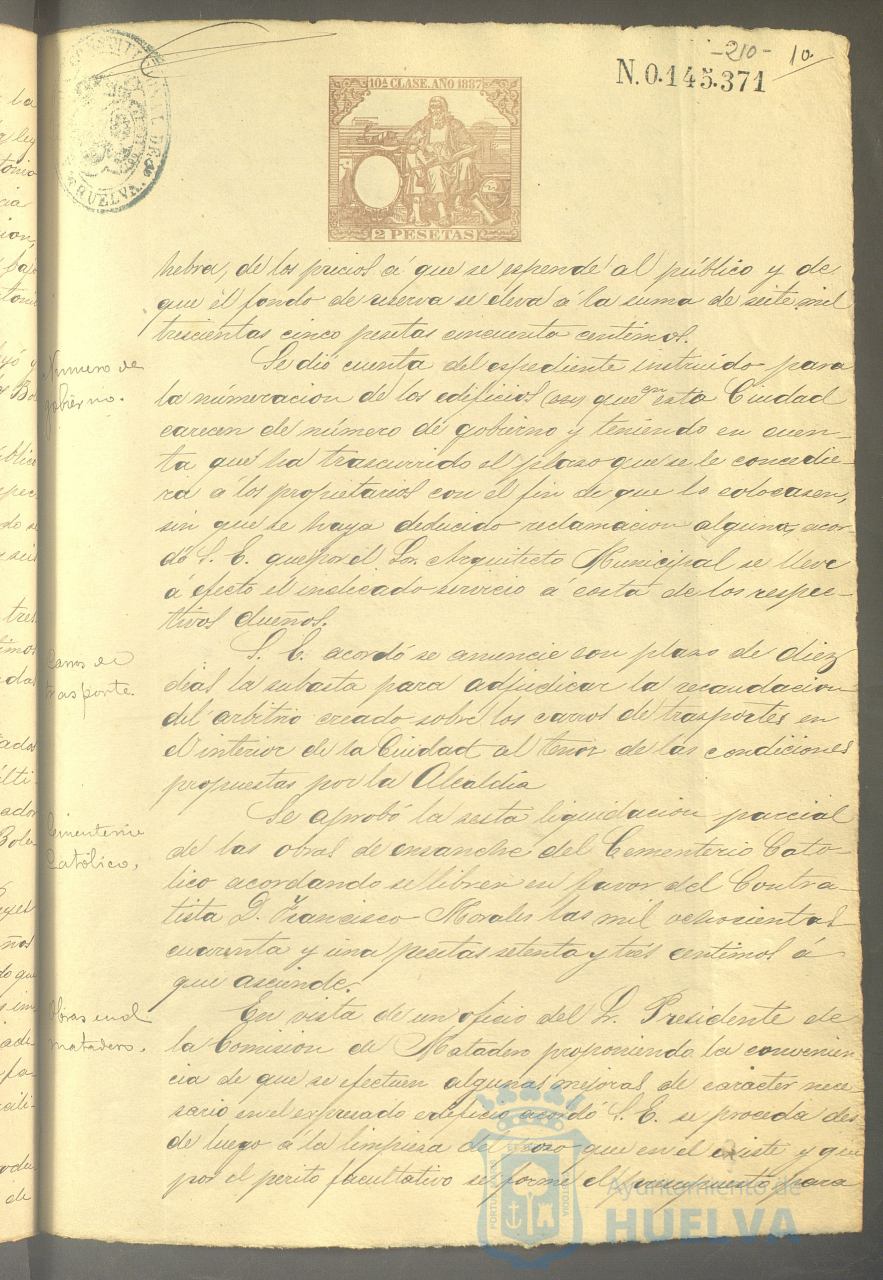 -210-
10
N.0.145.371
CONSTITUCIONAL DE
HUELVA.
10ª CLASE. AÑO 1887
2 PESETAS
hebra, de los precios á que se espende al público y de
que el fondo de reserva se eleva á la suma de siete mil
trescientas cinco pesetas cincuenta centimos.
Numero de
gobierno.
Se dió cuenta del espediente instruido para
la númeracion de los edificios que en esta Ciudad
carecen de número de gobierno y teniendo en cuen-
ta que ha trascurrido el plazo que se le concedie-
ra á los propietarios con el fin de que lo colocasen,
sin que se haya deducido reclamacion alguna, acor-
dó S. E. que por el Sor. Arquitecto Municipal se lleve
á efecto el indicado servicio á costa de los respec-
tivos dueños.
Carros de
trasporte.
S. E. acordó se anuncie con plazo de diez
dias la subasta para adjudicar la recaudacion
del arbitrio creado sobre los carros de trasportes en
el interior de la Ciudad al tenor de las condiciones
propuestas por la Alcaldía
Cementerio
Católico.
Se aprobó la sesta liquidacion parcial
de las obras de ensanche del Cementerio Cato-
lico acordando se libren en favor del Contra-
tista D. Francisco Morales las mil ochocientas
cuarenta y una pesetas setenta y tres centimos á
que asciende.
Obras en el
matadero.
En vista de un oficio del Sr. Presidente de
la Comision de Matadero proponiendo la convenien-
cia de que se efectuen algunas mejoras de carácter nece-
sario en el expresado edificio acordó S. E. se proceda des
de luego á la limpieza del pozo que en el existe y que
por el perito facultativo se forme el presupuesto para
Ayuntamiento de
HUELVA